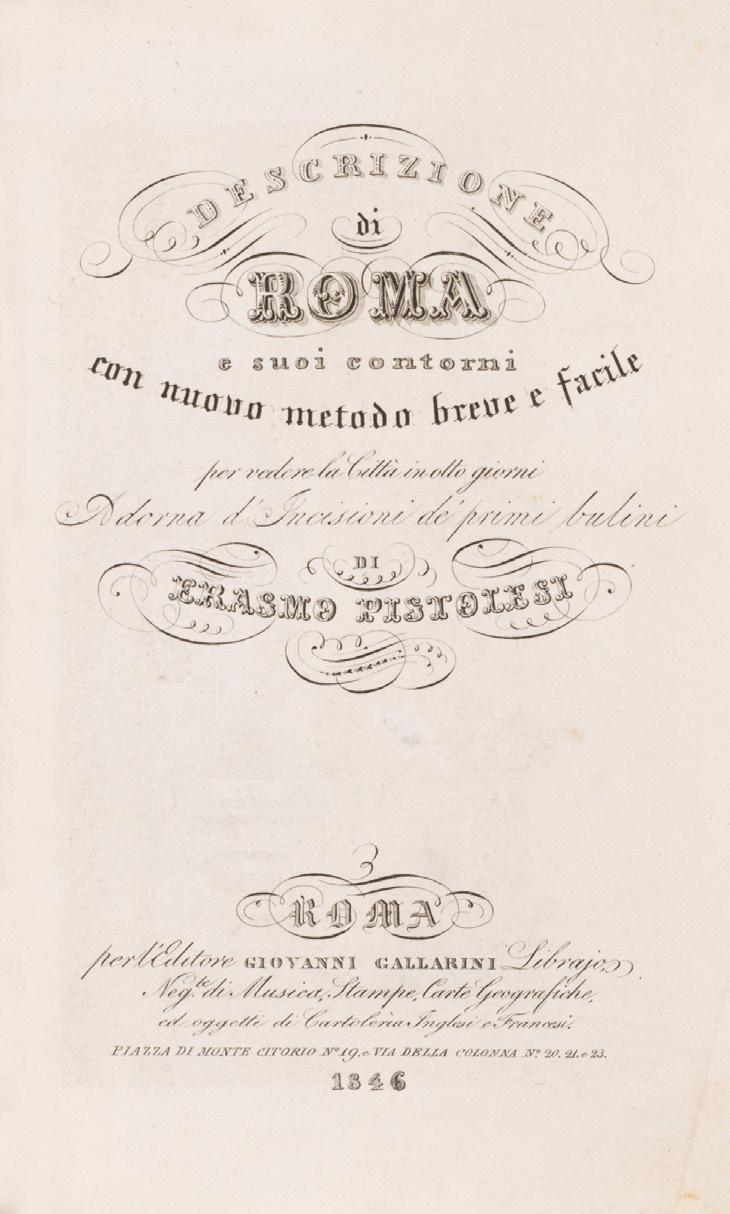 DESCRIZIONE
di
ROMA
e suoi contorni
con nuovo metodo breve e facile
per vedere la Città in otto giorni
Adorna d'Incisioni de' primi bulini
DI
ERASMO PISTOLESI
ROMA
per l'Editore GIOVANNI GALLARINI Librajo
Neg.te di Musica, Stampe, Carte Geografiche,
ed oggetti di Cartoleria Inglesi e Francesi.
PIAZZA DI MONTE CITORIO No 19. e VIA DELLA COLONNA No 20. 21. e 23.
1846